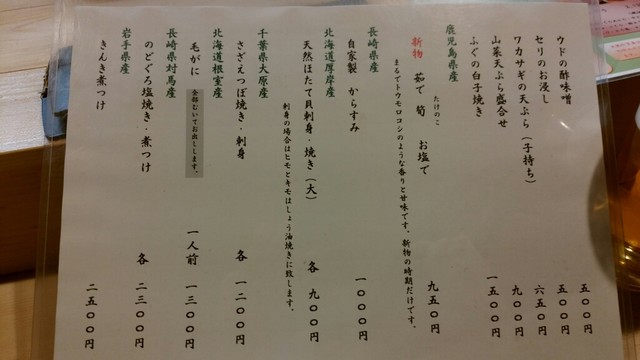 ウドの酢味噌 五〇〇円
セリのお浸し 五〇〇円
ワカサギの天ぷら(子持ち) 六五〇円
山菜天ぷら盛合せ 九〇〇円
ふぐの白子焼き 一五〇〇円
鹿児島県産
新物 茹で筍 お塩で 九五〇円
たけのこ
まるでトウモロコシのような香りと甘味です。新物の時期だけです。
長崎県産
自家製 からすみ 一〇〇〇円
北海道厚岸産
天然ほたて貝刺身・焼き(大) 各 九〇〇円
刺身の場合はヒモとキモはしょう油焼きに致します。
千葉県大原産
さざえつぼ焼き・刺身 各 一二〇〇円
北海道根室産
毛がに 全部むいてお出しします。 一人前 一三〇〇円
長崎県対馬産
のどぐろ塩焼き・煮つけ 各 二三〇〇円
岩手県産
きんき煮つけ 二五〇〇円